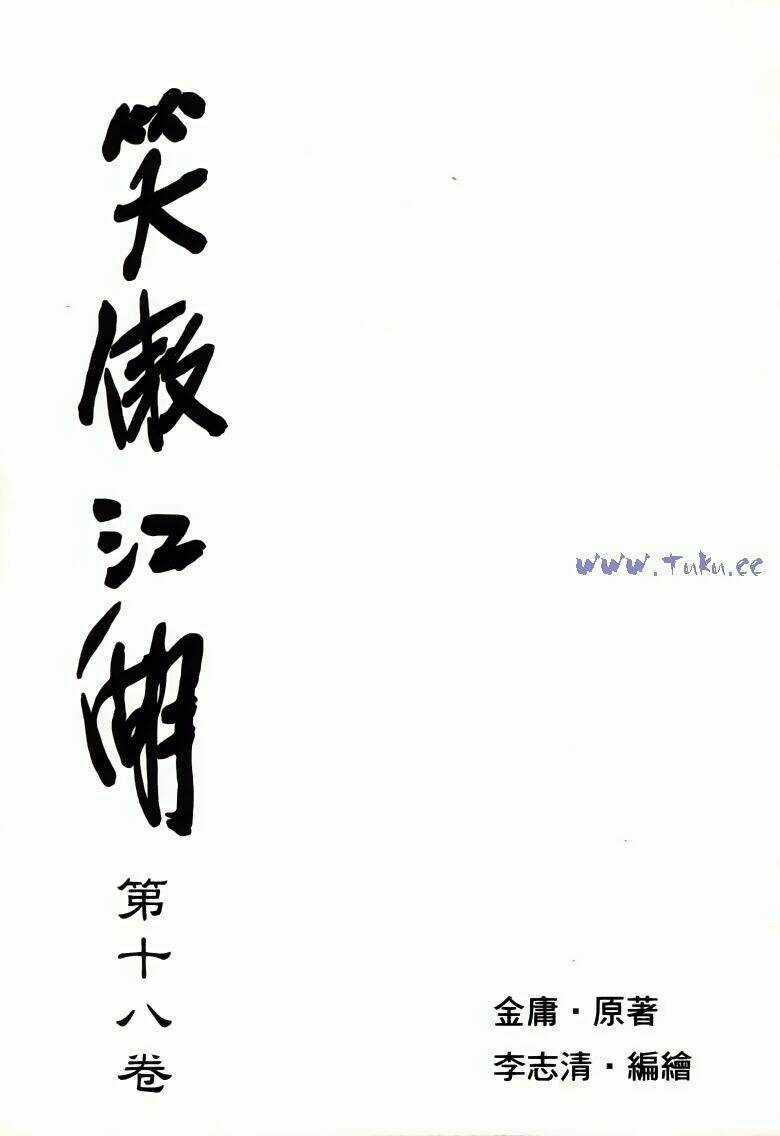 笑傲江湖
第十八卷
www.Tuku.cc
金庸·原著
李志清·編繪